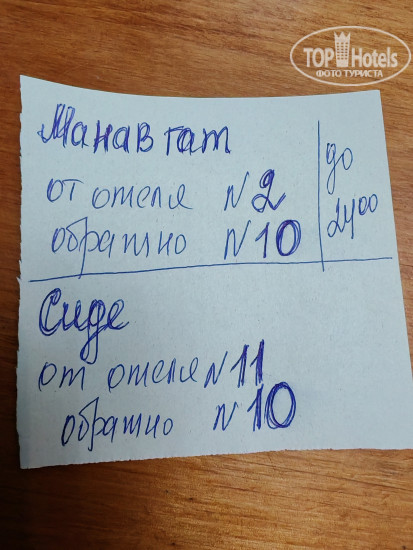 TOP Hotels
ФОТО ТУРИСТА
Манавгат
от отеля N2
обратно N10
до
24⁰⁰
Сиде
от отеля N11
обратно N10